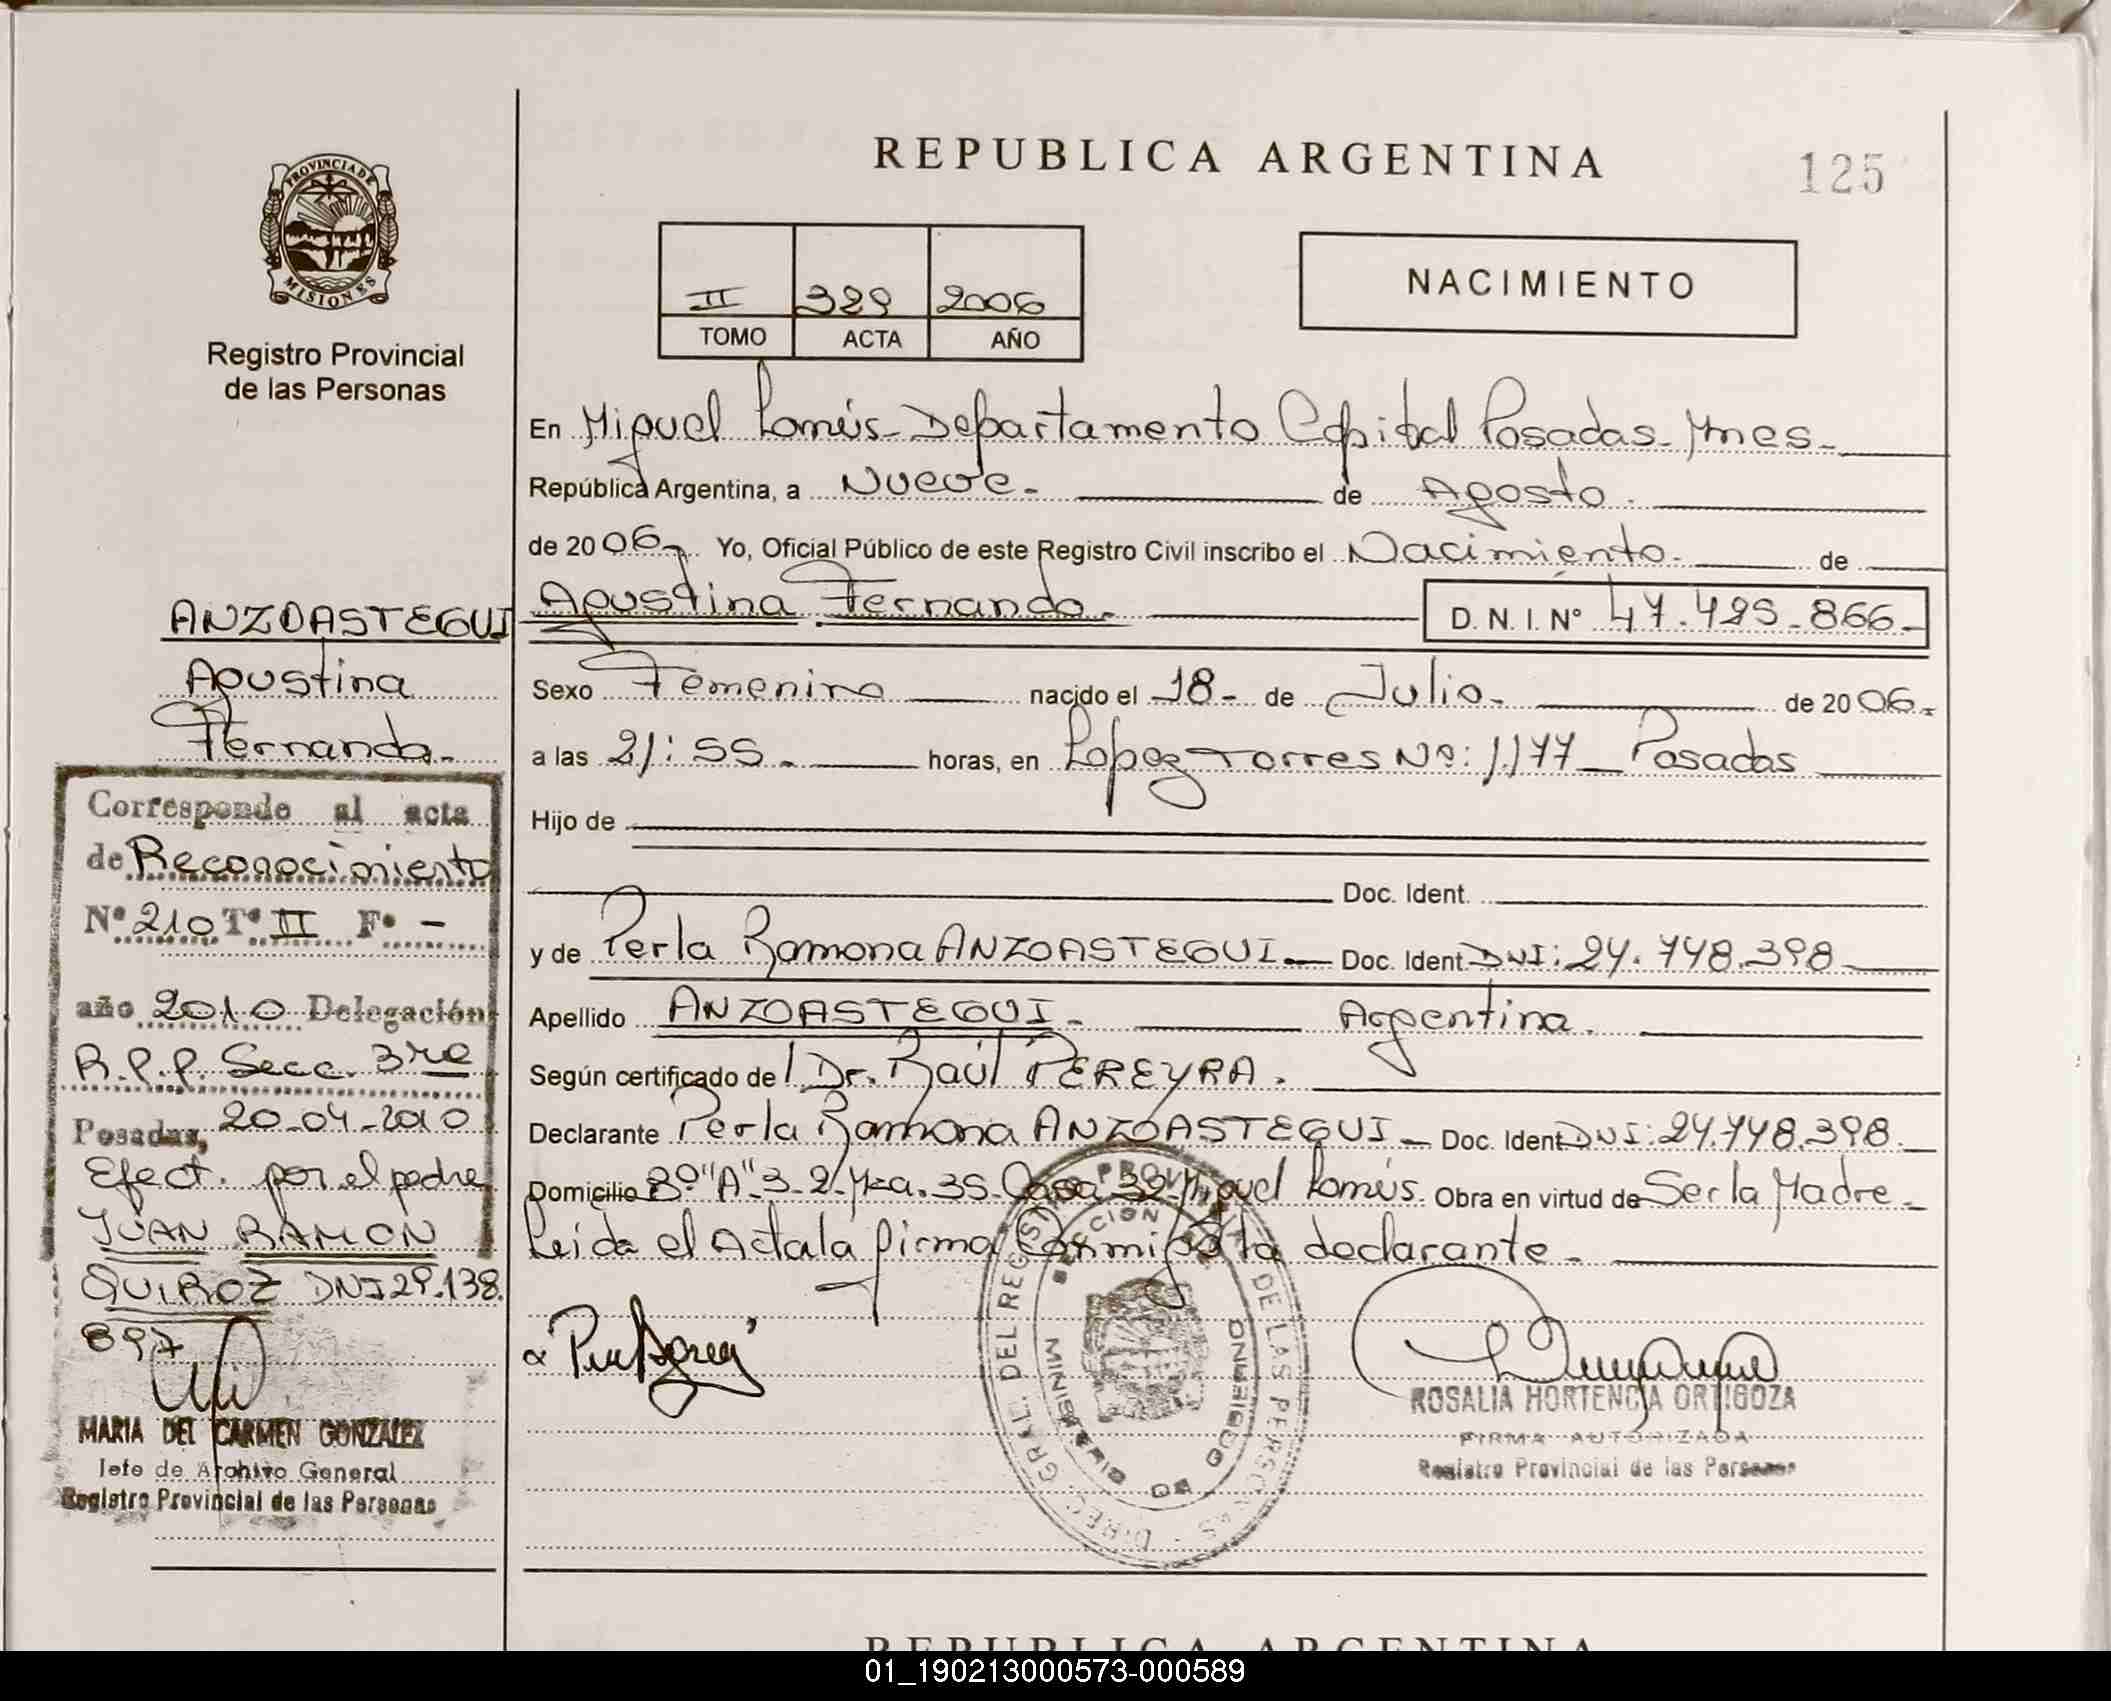 REPUBLICA ARGENTINA
125
PROVINCIA DE
MISIONES
Registro Provincial
de las Personas
II 329 2006
TOMO ACTA AÑO
NACIMIENTO
En Miguel Lanús - Departamento Capital Posadas - Mnes -
República Argentina, a Nueve - de Agosto.
de 2006, Yo, Oficial Público de este Registro Civil inscribo el Nacimiento - de
Agustina Fernanda - D. N. I. Nº 47.425.866 -
Sexo Femenino nacido el 18 - de Julio - de 2006.
a las 21:55 - horas, en Lopez Torres Nº: 1.177 - Posadas
Hijo de
Doc. Ident.
y de Perla Ramona ANZOASTEGUI - Doc. Ident. DNI: 24.748.398
Apellido ANZOASTEGUI - Argentina.
Según certificado de Dr. Raúl PEREYRA.
Declarante Perla Ramona ANZOASTEGUI - Doc. Ident. DNI: 24.748.398.
Domicilio Bº "A" 3-2 Mza. 35 - Casa 32 Miguel Lanús. Obra en virtud de Ser la Madre -
Leida el Acta la firma Conmigo la declarante -
ROSALIA HORTENCIA ORTIGOZA
FIRMA AUTORIZADA
Registro Provincial de las Personas
DIREC. GRAL. DEL REGISTRO PROVINCIAL DE LAS PERSONAS
MINISTERIO DE GOBIERNO
SECCION
ANZOASTEGUI
Agustina
Fernanda -
Corresponde al acta
de Reconocimiento
Nº 210 Tº II Fº -
año 2010 Delegación
R.P.P. Secc. 3ra
Posadas, 20-04-2010
Efect. por el padre
JUAN RAMON
QUIROZ DNI 29.138.
897
MARIA DEL CARMEN GONZALEZ
Jefe de Archivo General
Registro Provincial de las Personas
REPUBLICA ARGENTINA
01_190213000573-000589